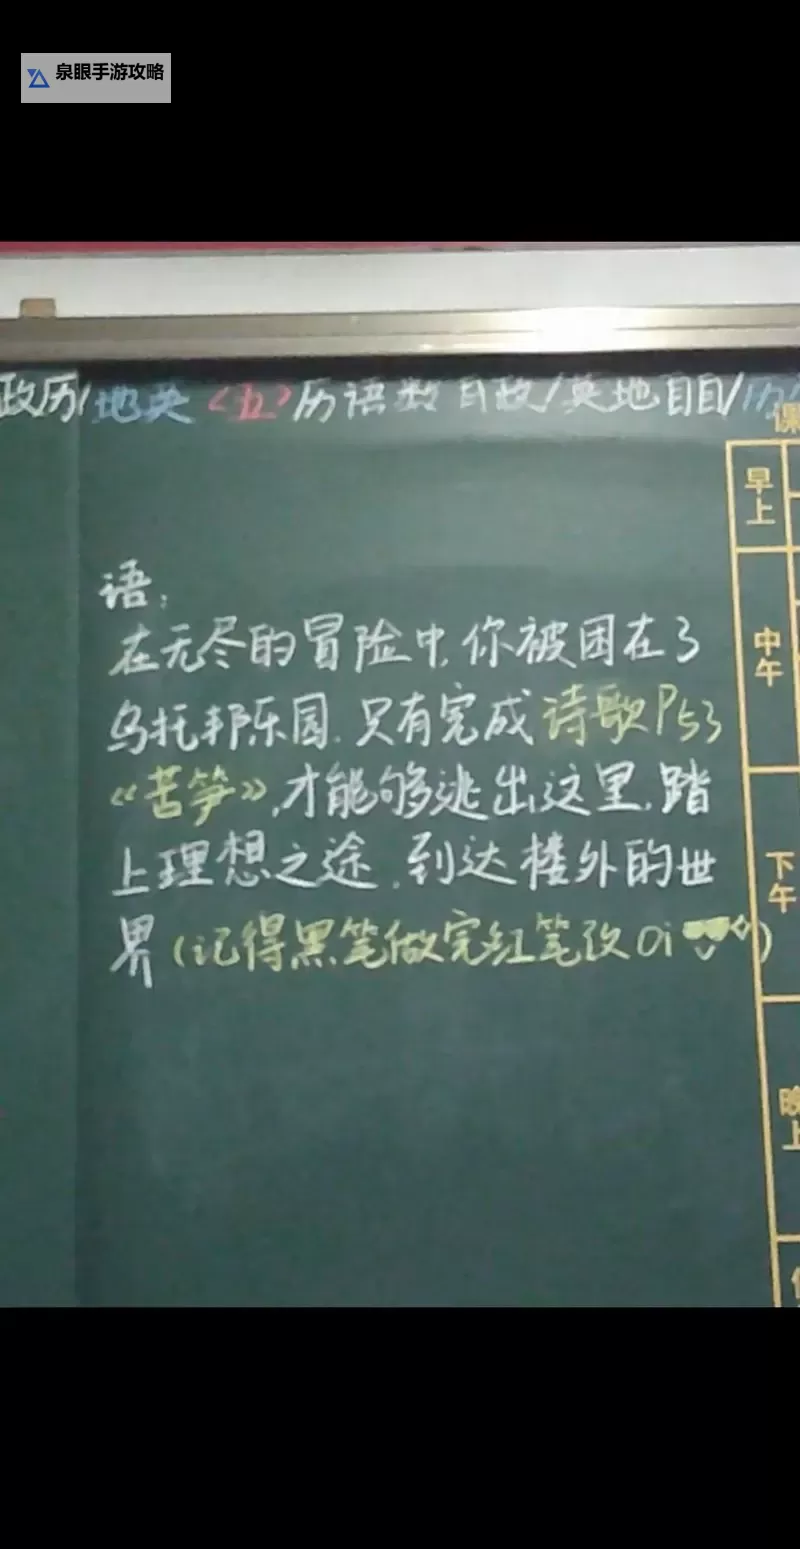 泉眼手游攻略
政历/地英<五>历语数自政/英地自自/历
课
早上
语:
在无尽的冒险中,你被困在了
中午
乌托邦乐园.只有完成诗歌P53
《苦笋》,才能够逃出这里.踏
上理想之途,到达楼外的世
下午
界(记得黑笔做完红笔改Oi)
晚上